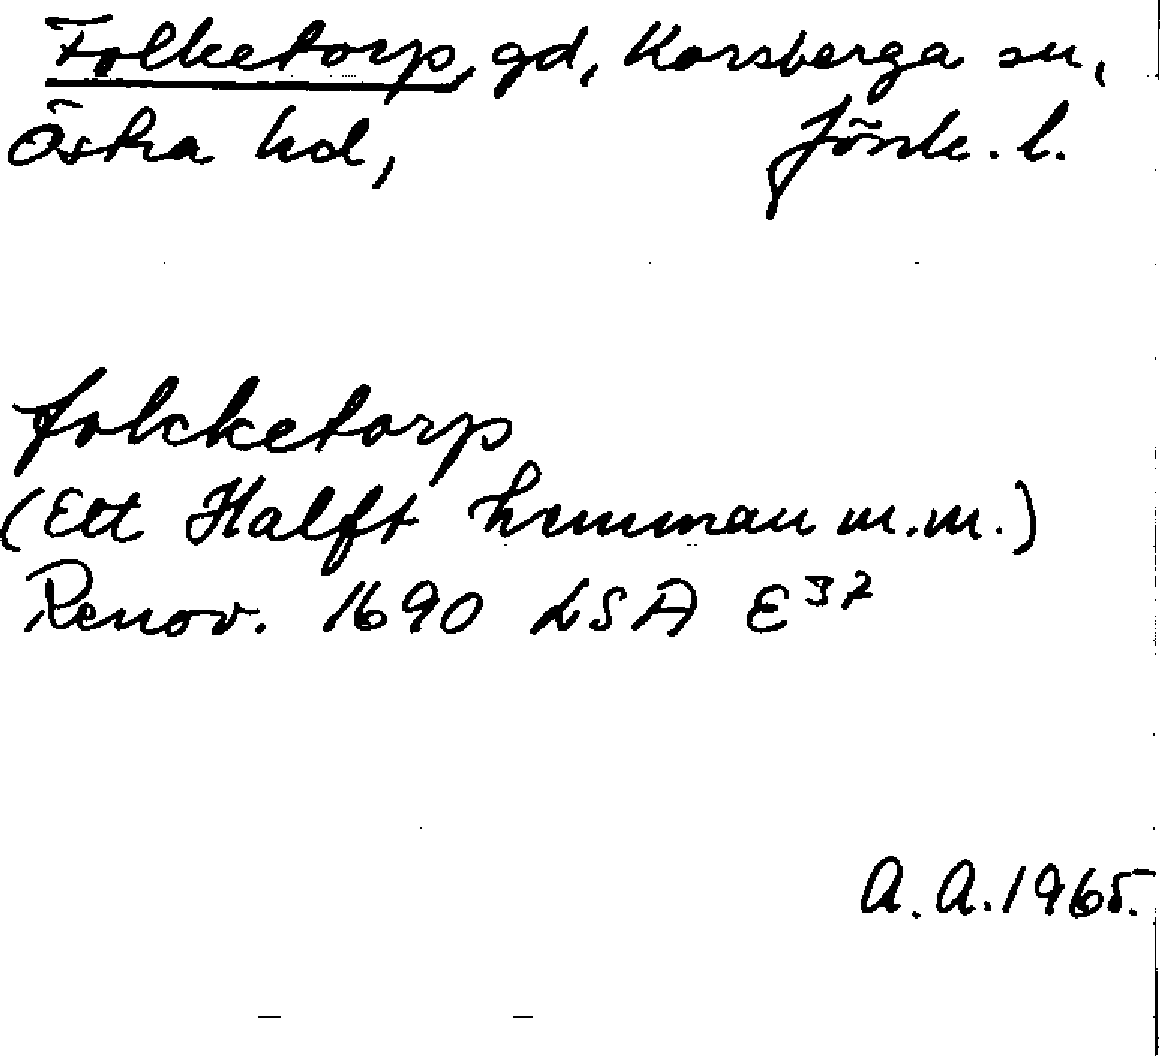 Folketorp, gd, Korsberga sn,
Östra hd, Jönk. l.
folcketorp
(Ett Halft hemman m.m.)
Renov. 1690 LSA E 37
A.A. 1965.